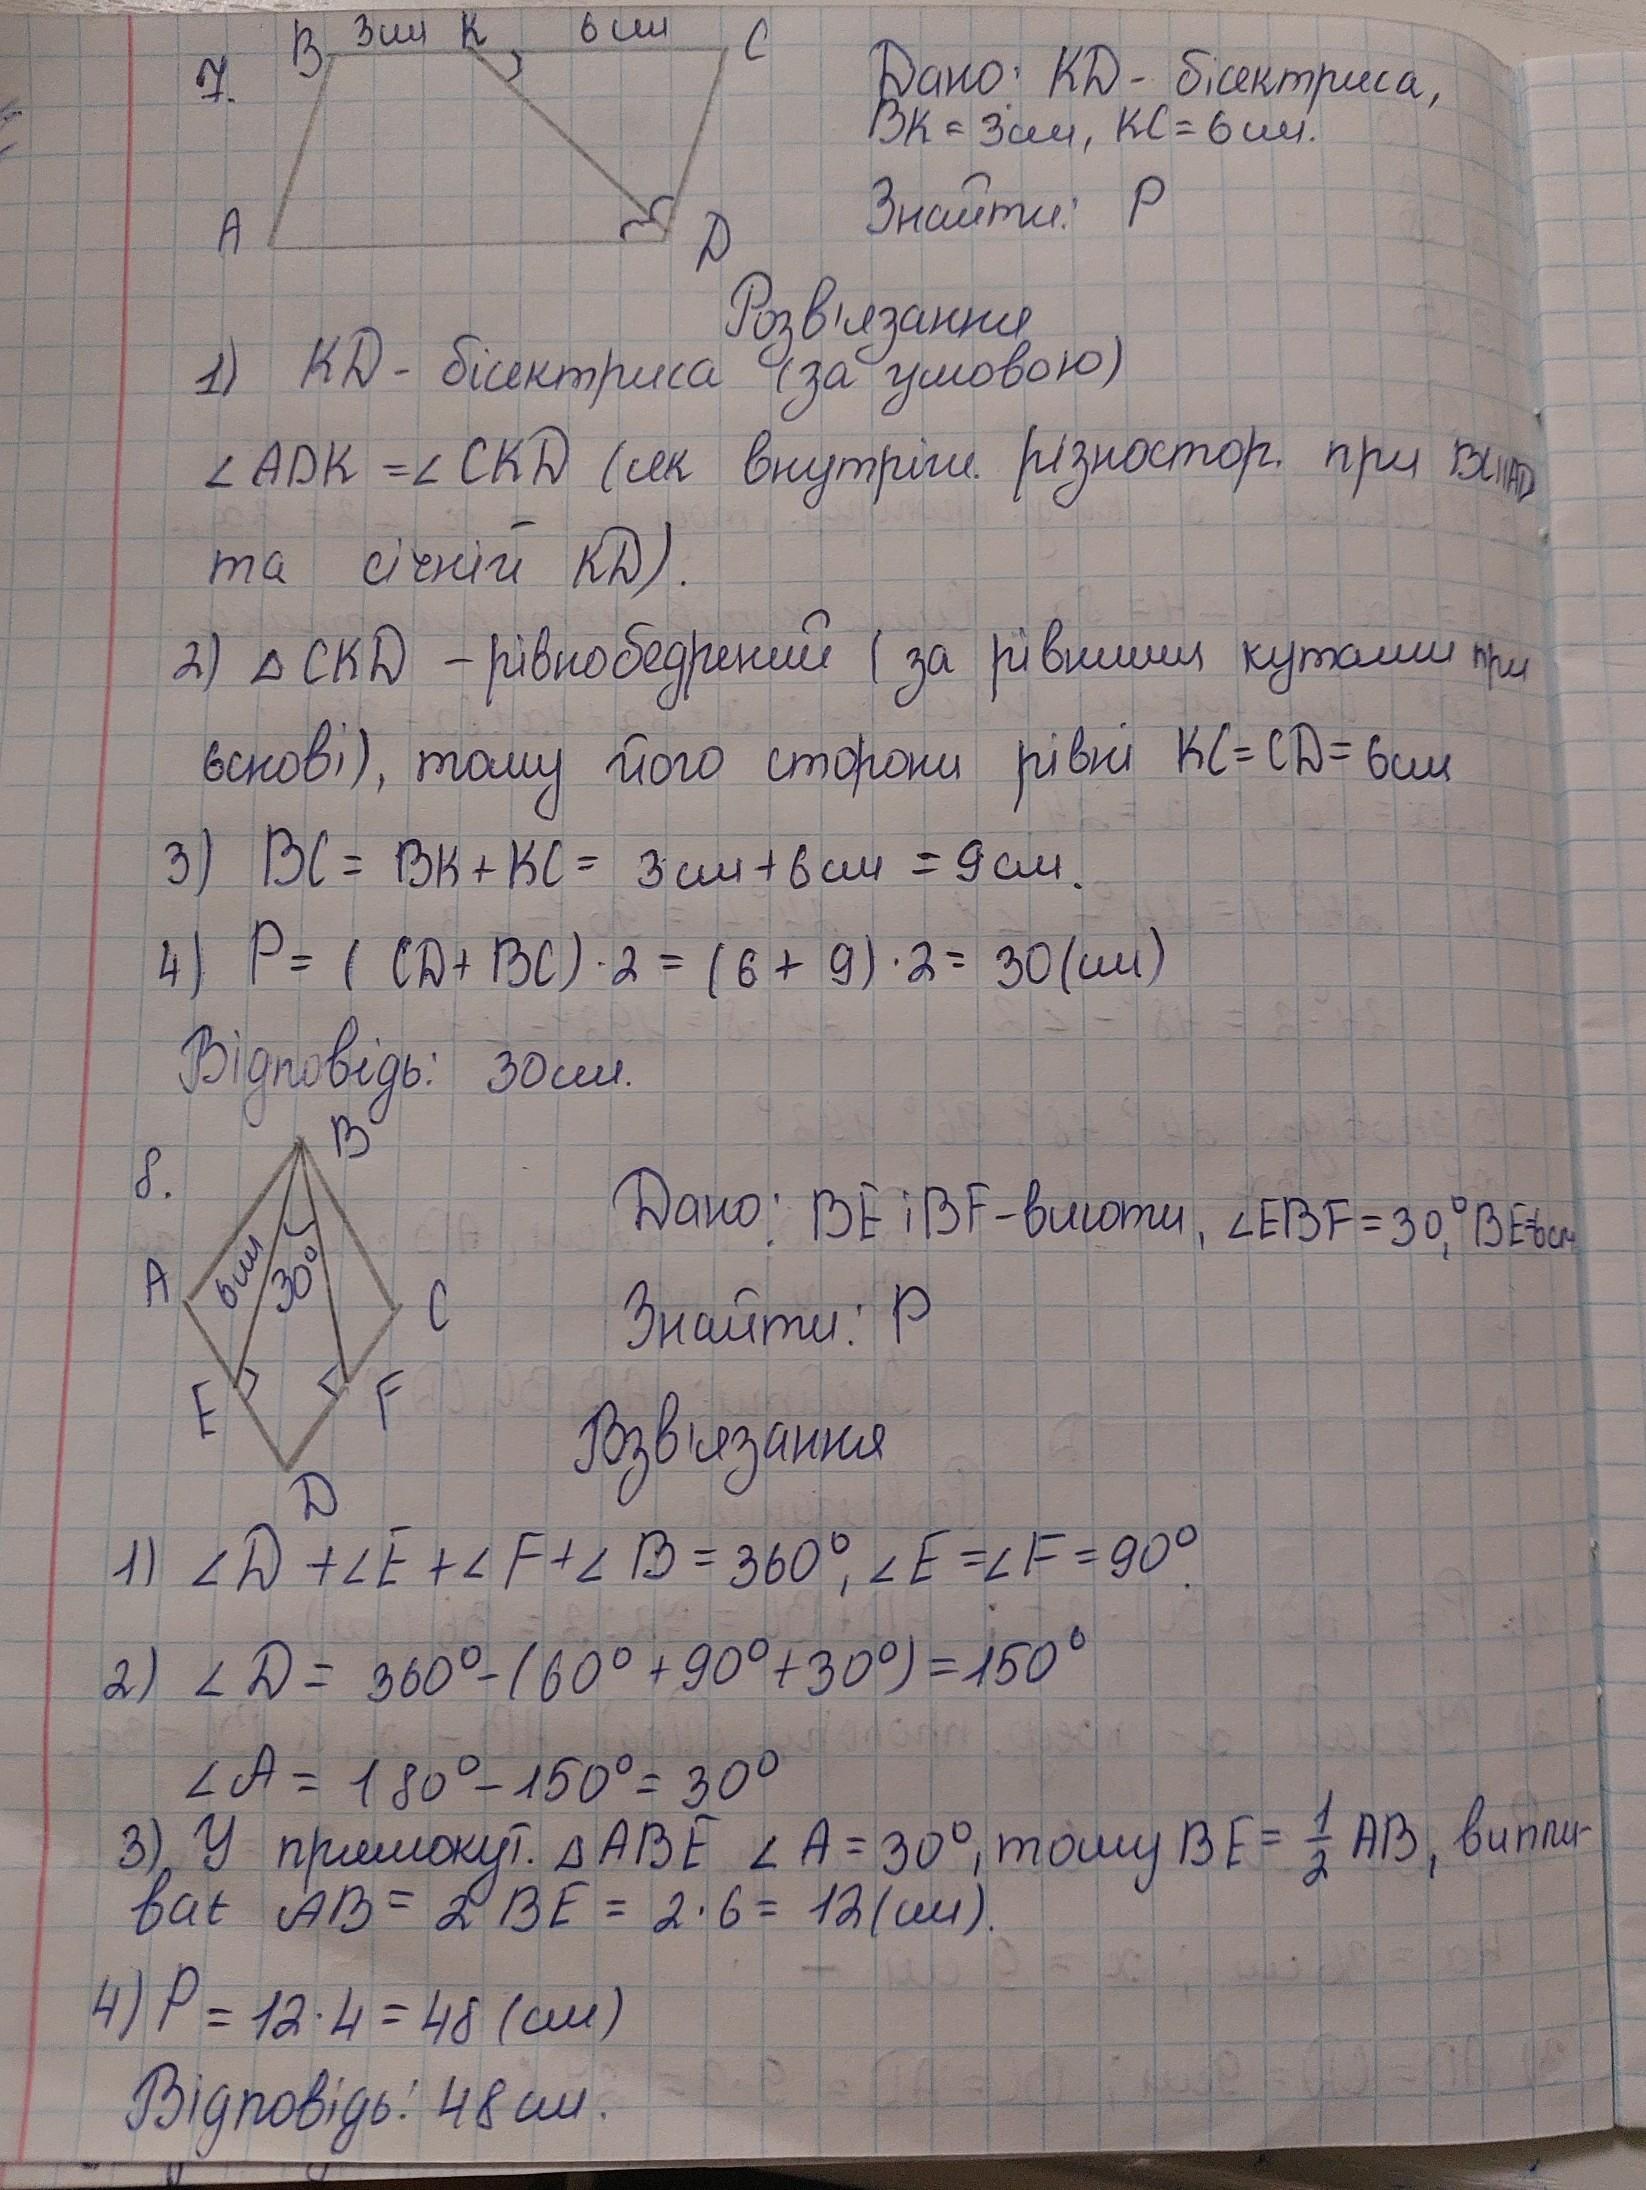 7.
B 3см K 6см C
A D
Дано: KD - бісектриса,
BK = 3см, KC = 6см.
Знайти: P
Розв'язання
1) KD - бісектриса (за умовою)
∠ADK = ∠CKD (як внутріш. різностор. при BC||AD
та січній KD).
2) △CKD - рівнобедрений (за рівними кутами при
основі), тому його сторони рівні KC = CD = 6см
3) BC = BK + KC = 3см + 6см = 9см.
4) P = (CD + BC) · 2 = (6 + 9) · 2 = 30(см)
Відповідь: 30см.
8.
B
A 6см 30° C
E F
D
Дано: BE і BF - висоти, ∠EBF = 30°, BE=6см
Знайти: P
Взв'язання
1) ∠D + ∠E + ∠F + ∠B = 360°, ∠E = ∠F = 90°.
2) ∠D = 360° - (60° + 90° + 30°) = 150°
∠A = 180° - 150° = 30°
3) У прямокут. △ABE ∠A = 30°, тому BE = 1/2 AB, випли-
ває AB = 2 BE = 2 · 6 = 12(см).
4) P = 12 · 4 = 48 (см)
Відповідь: 48см.